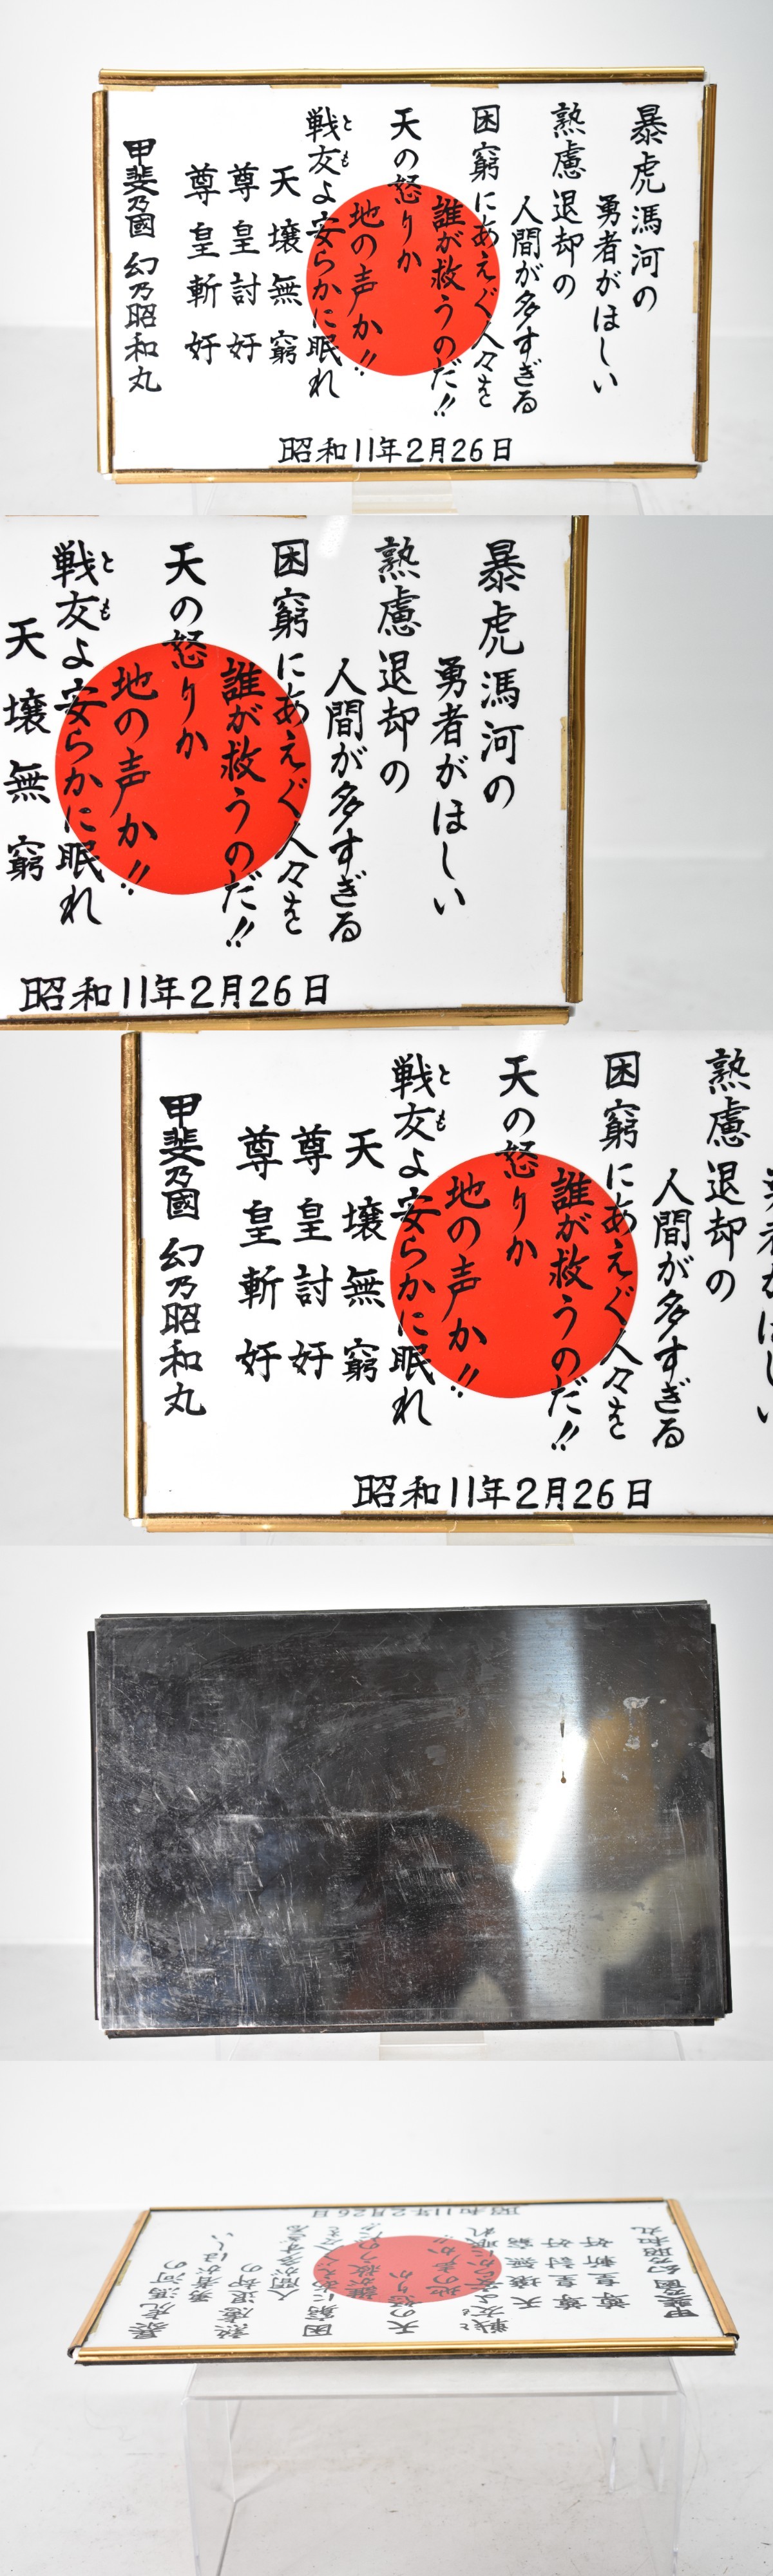 暴虎馮河の
勇者がほしい
熟慮退却の
人間が多すぎる
困窮にあえぐ人々を
誰が救うのだ!!
天の怒りか
地の声か!!
戦友よ安らかに眠れ
とも
天壌無窮
尊皇討奸
尊皇斬奸
甲斐乃國 幻乃昭和丸
昭和11年2月26日
暴虎馮河の
勇者がほしい
熟慮退却の
人間が多すぎる
困窮にあえぐ人々を
誰が救うのだ!!
天の怒りか
地の声か!!
戦友よ安らかに眠れ
とも
天壌無窮
昭和11年2月26日
熟慮退却の
人間が多すぎる
困窮にあえぐ人々を
誰が救うのだ!!
天の怒りか
地の声か!!
戦友よ安らかに眠れ
とも
天壌無窮
尊皇討奸
尊皇斬奸
甲斐乃國 幻乃昭和丸
昭和11年2月26日